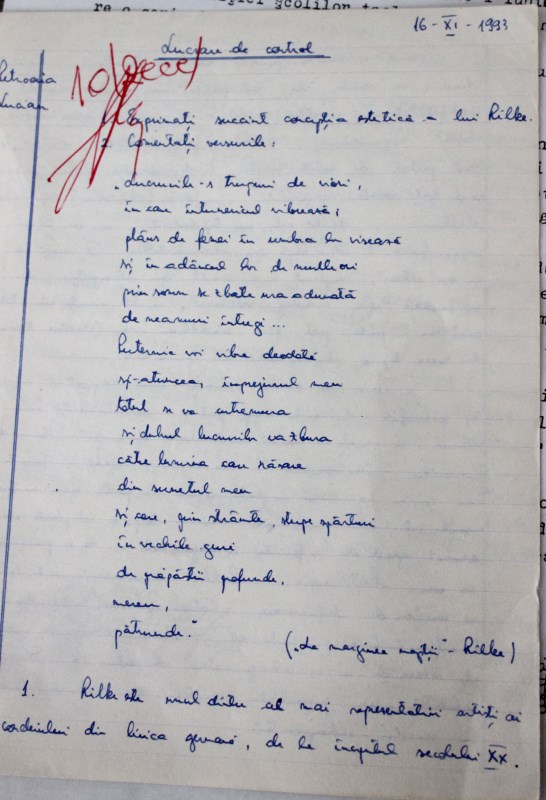 re a școlilor
16-XI-1993
Lucrare de control
Petroaia
Lucian
10/zece/
1. Exprimați succint concepția estetică a lui Rilke.
2. Comentați versurile:
„Lucrurile-s trupuri de viori,
în care întunericul vibrează;
plâns de femei în umbra lor visează
și în adâncul lor de multe ori
prin somn se zbate ura adunată
de neamuri întregi...
Puternic voi vibra deodată
și-atuncea, împrejurul meu
totul se va cutremura
și duhul lucrurilor va zbura
către lumina care răsare
din sunetul meu
și care, prin strâmte, sterpe spărturi
în vechile guri
de prăpăstii profunde,
mereu,
pătrunde."
(„La marginea nopții" - Rilke)
1. Rilke este unul dintre cei mai reprezentativi artiști ai
cuvântului din lirica germană, de la începutul secolului XX.